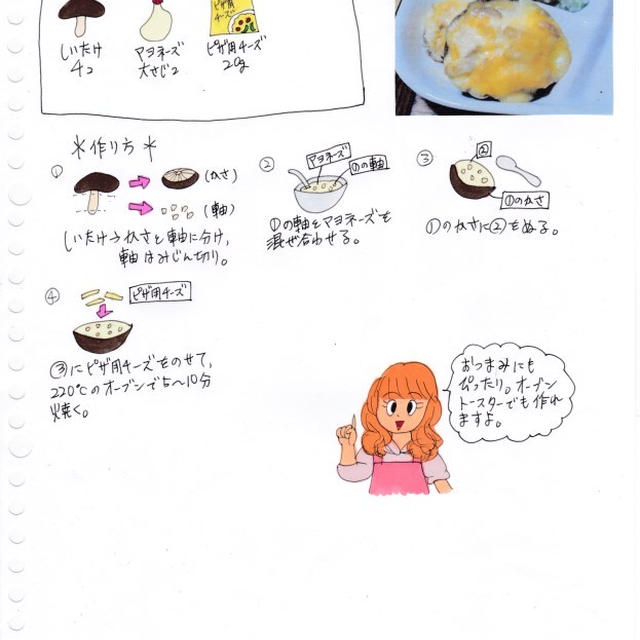 しいたけ
4コ
マヨネーズ
大さじ2
ピザ用
チーズ
ピザ用チーズ
20g
＊作り方＊
①
(かさ)
(軸)
しいたけ→かさと軸に分け、
軸はみじん切り。
②
マヨネーズ
①の軸
①の軸とマヨネーズを
混ぜ合わせる。
③
②
①のかさ
①のかさに②をぬる。
④
ピザ用チーズ
③にピザ用チーズをのせて、
220℃のオーブンで5〜10分
焼く。
おつまみにも
ぴったり。オーブン
トースターでも作れ
ますよ。